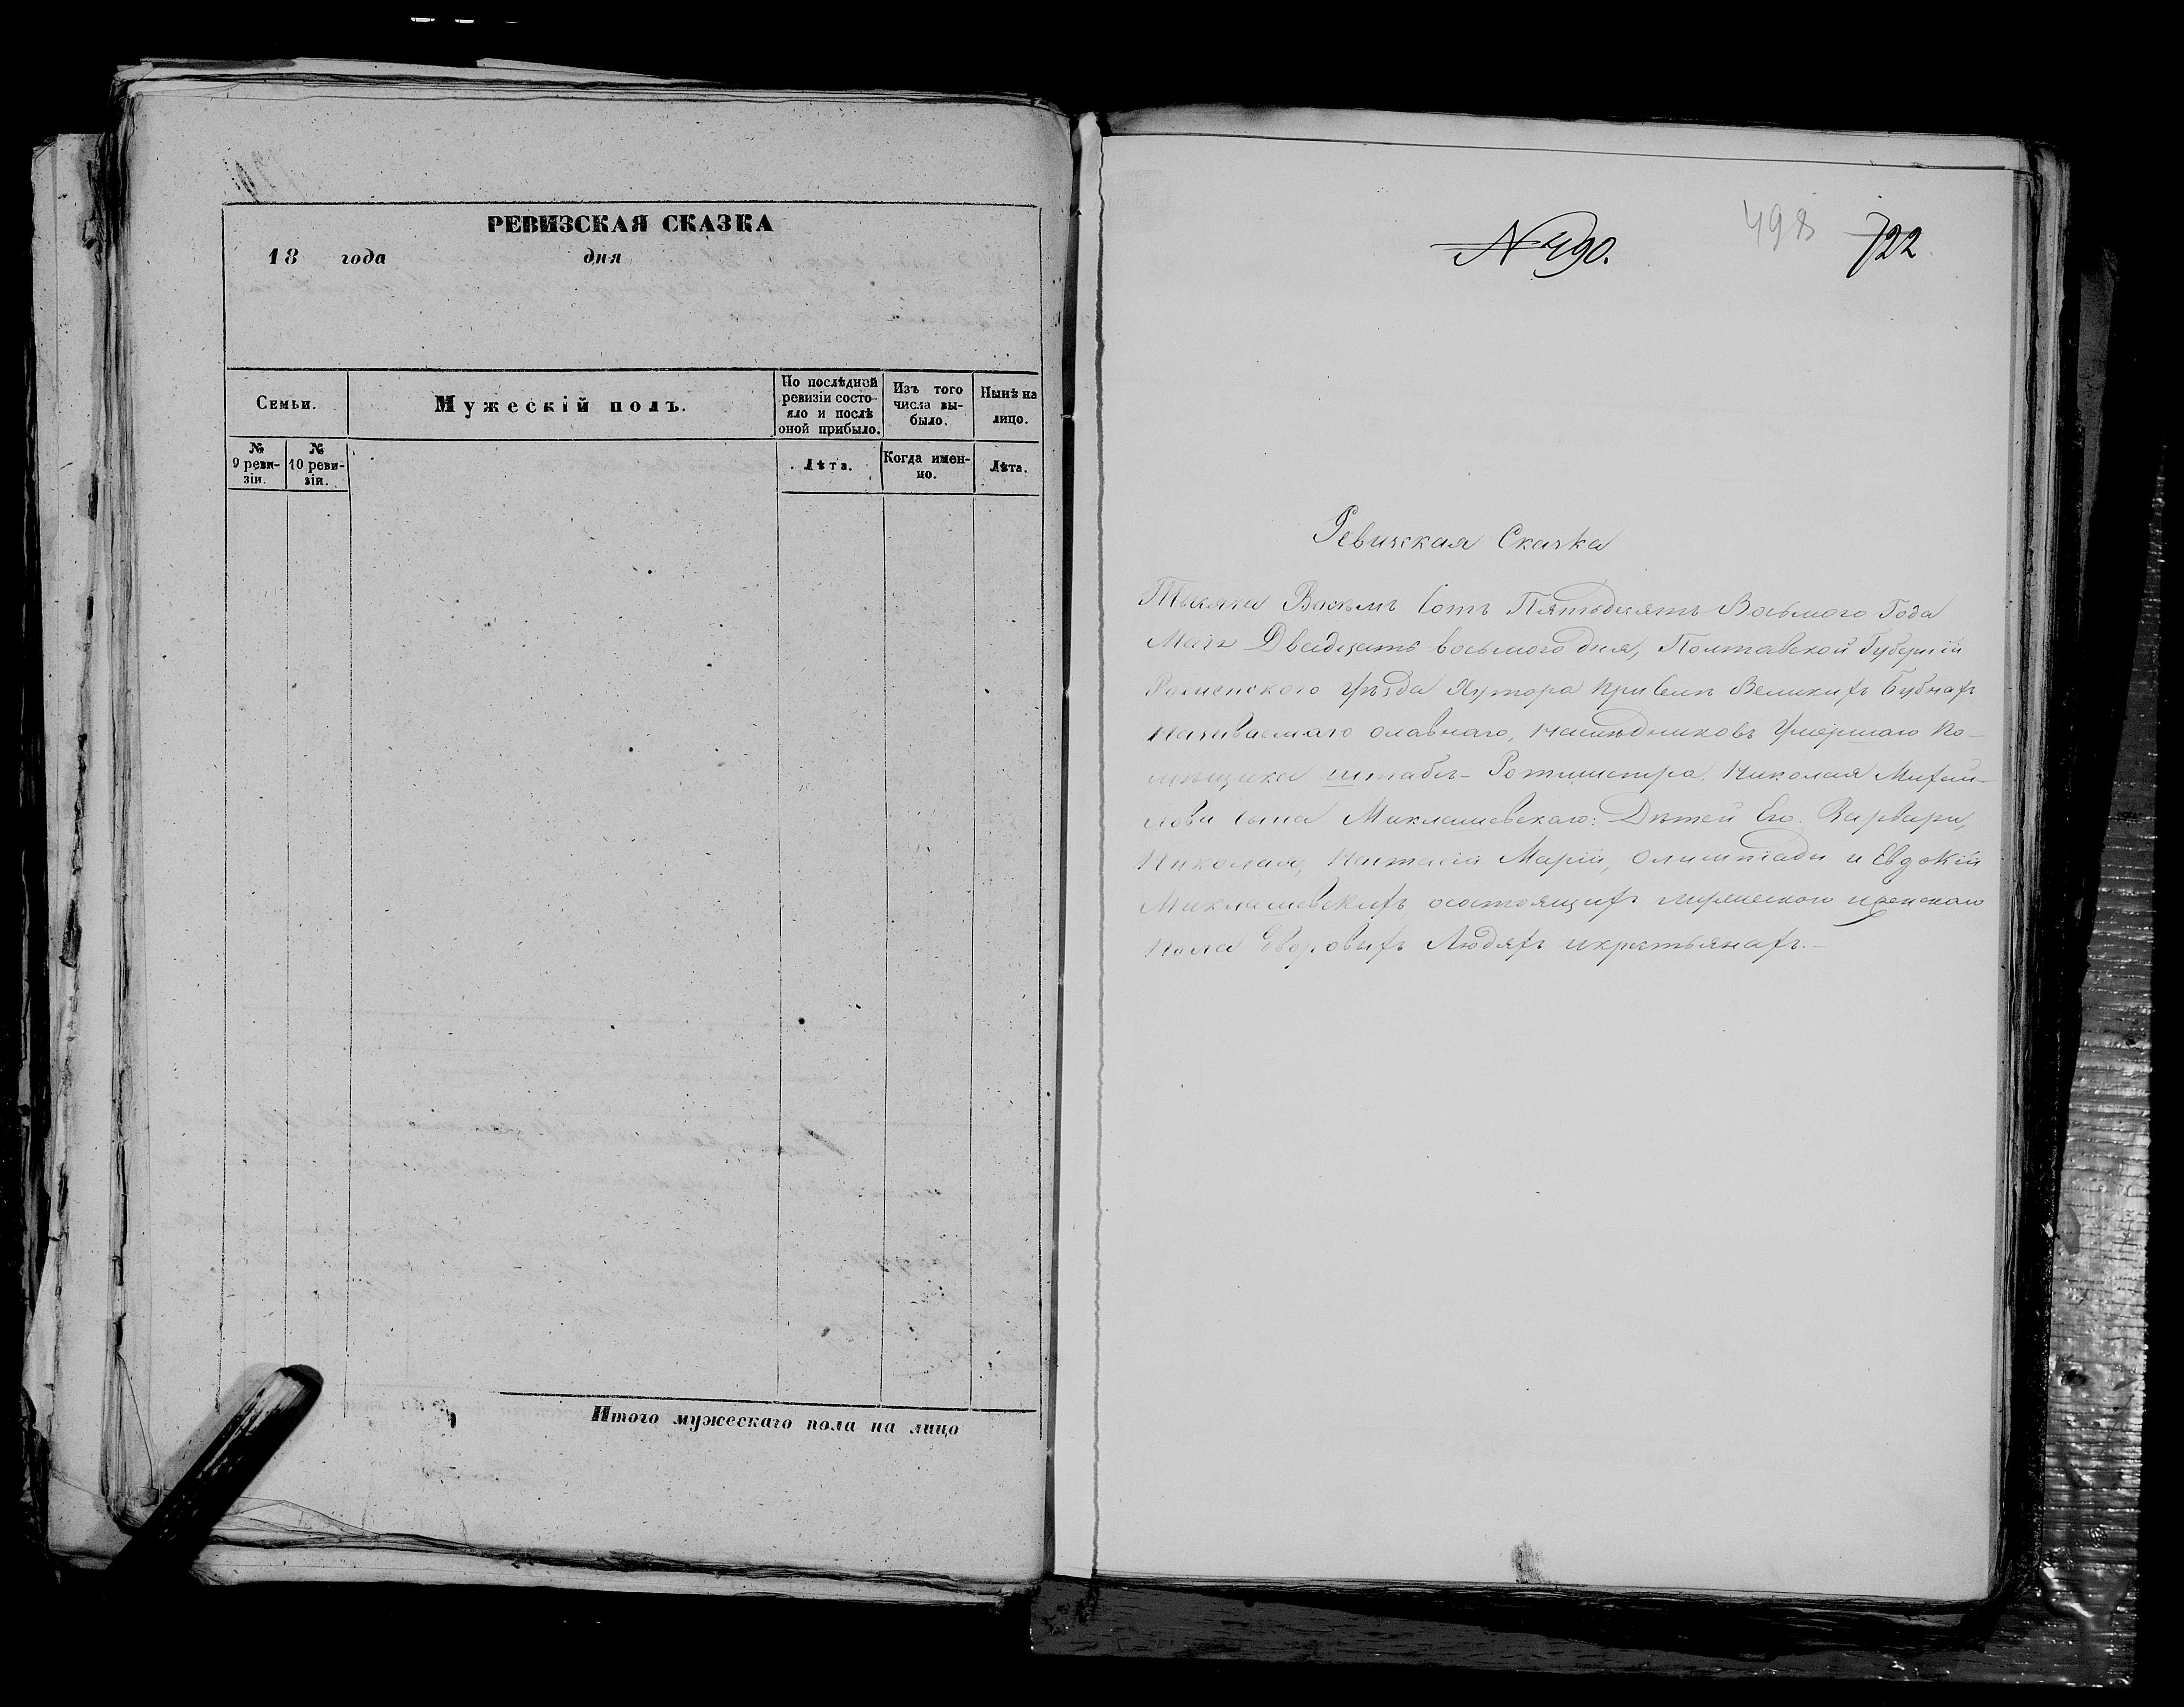 РЕВИЗСКАЯ СКАЗКА
18 года дня
Семьи.
Мужескій полъ.
По послѣдней ревизіи состо-
яло и послѣ
оной прибыло.
Изъ того
числа вы-
было.
Нынѣ на
лицо.
№
9 реви-
зіи.
№
10 реви-
зіи.
Лѣта.
Когда имен-
но.
Лѣта.
Итого мужескаго пола на лицо
№ 490.
498
722
Ревизкая Сказка
Тысяча Восемь Сотъ Пятьдесятъ Восьмого Года
Маія Двадцать восьмого дня, Полтавской Губерніи
Роменского уѣзда Хутора при Селѣ Великихъ Бубнахъ
Называемаго Славнаго, Наслѣдниковъ Умершаго По-
мѣщика штабсъ-Ротмистра Николая Михай-
лова сына Миклашевскаго: Дѣтей Его. Варвары,
Николая, Наталіи Маріи, Олимпіады и Евдокіи
Миклашевскихъ о состоящихъ мужеского и женского
пола Дворовыхъ Людяхъ и крестьянахъ.-